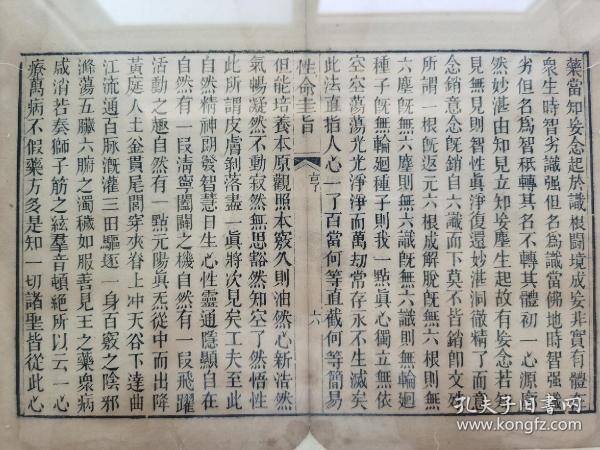 藥當知妄念起於識根鬬境成妄非實有體在
衆生時智劣識强但名爲識當佛地時智强識
劣但名爲智秖轉其名不轉其體初一心源廓
然妙湛由知見立知妄塵生起故有妄念若知
見無見則智性眞淨復還妙湛洞徹精了而意
念銷意念旣銷自六識而下莫不皆銷卽文殊
所謂一根旣返元六根成解脫旣無六根則無
六塵旣無六塵則無六識旣無六識則無輪迴
種子旣無輪迴種子則我一點眞心獨立無依
空空蕩蕩光光淨淨而萬刼常存永不生滅矣
此法直指人心一了百當何等直截何等簡易
性命圭旨
六
但能培養本原觀照本竅久則油然心新浩然
氣暢凝然不動寂然無思豁然知空了然悟性
此所謂皮膚剝落盡一眞將次見矣工夫至此
自然精神朗發智慧日生心性靈通隱顯自在
自然有一叚淸寧闔闢之機自然有一叚飛躍
活動之趣自然有一點元陽眞炁從中而出降
黃庭入土釜貫尾閭穿夾脊上冲天谷下達曲
江流通百脉漑灌三田驅逐一身百竅之陰邪
滌蕩五臟六腑之濁穢如服善見王之藥衆病
咸消若奏獅子筋之絃羣音頓絕所以云一心
療萬病不假藥方多是知一切諸聖皆從此心
孔夫子旧書网
www.kongfz.com